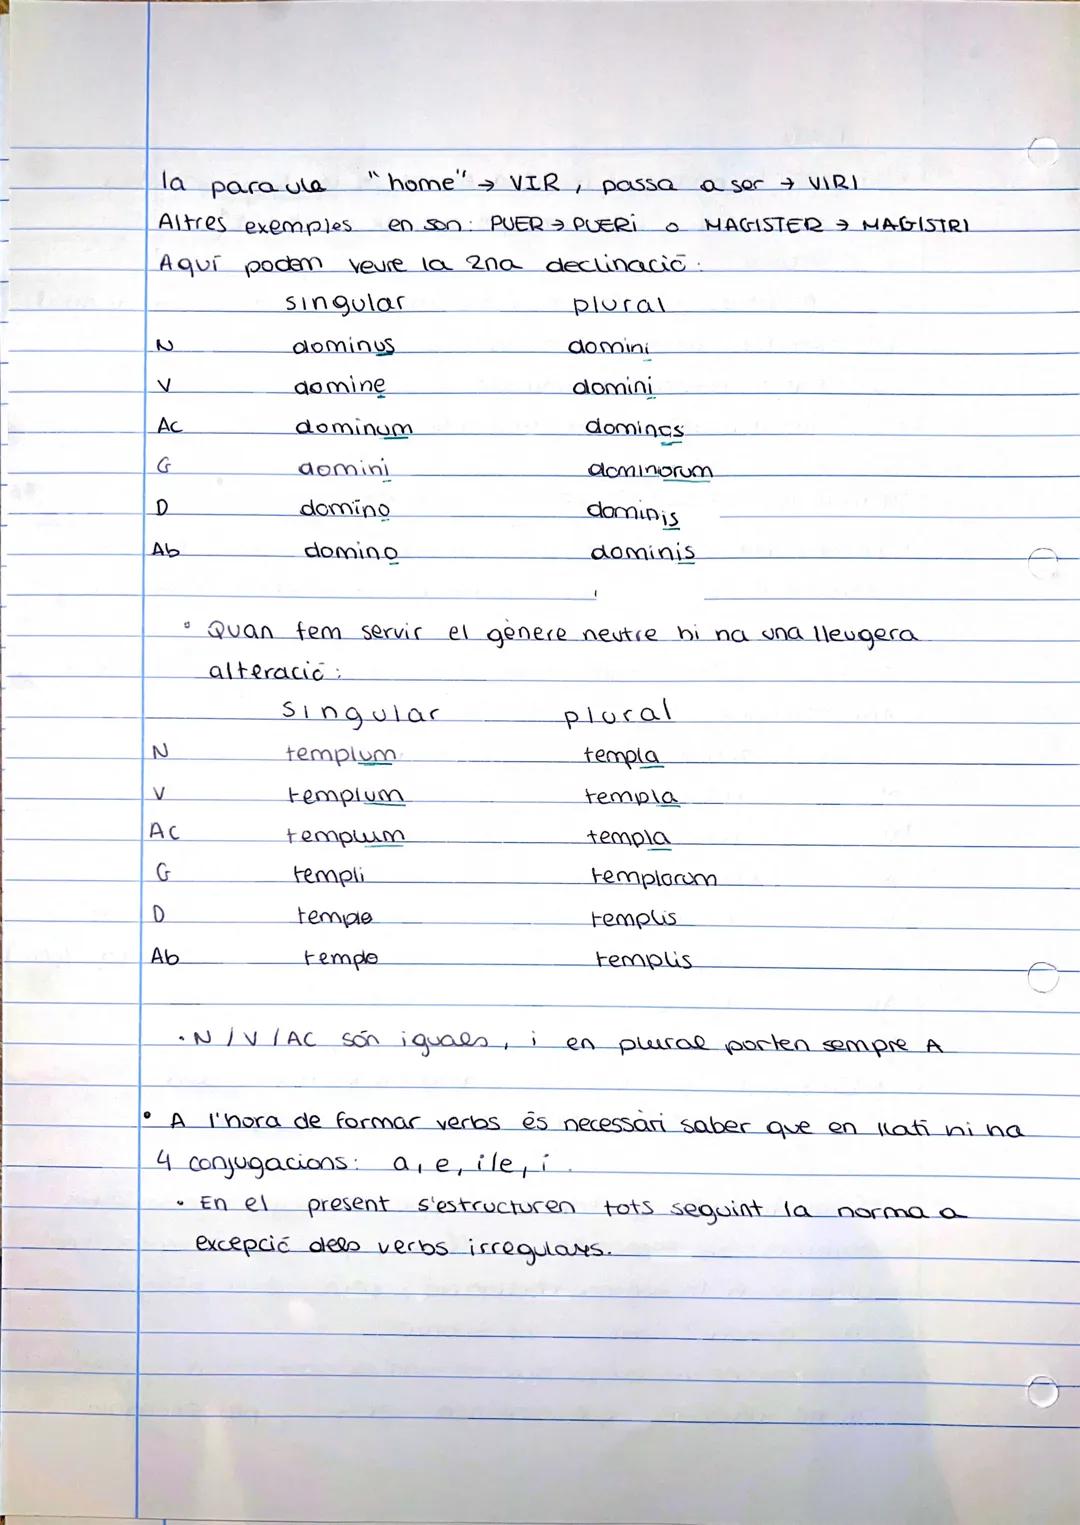 la paraula "home" → VIR, passa a ser → VIRI
Altres exemples en son: PUER → PUERi o MAGISTER → MAGISTRI
Aquí podem veure la 2na declinació:
singular plural
N dominus domini
V domine domini
Ac dominum dominos
G domini dominorum
D domino dominis
Ab domino dominis
• Quan fem servir el gènere neutre hi ha una lleugera
alteració:
singular plural
N templum templa
V templum templa
AC templum templa
G templi templorum
D templo templis
Ab templo templis
• N / V / AC són iguals, i en plural porten sempre A
• A l'hora de formar verbs és necessàri saber que en llatí hi ha
4 conjugacions: a, e, i/e, i.
• En el present s'estructuren tots seguint la norma a
excepció dels verbs irregulars.